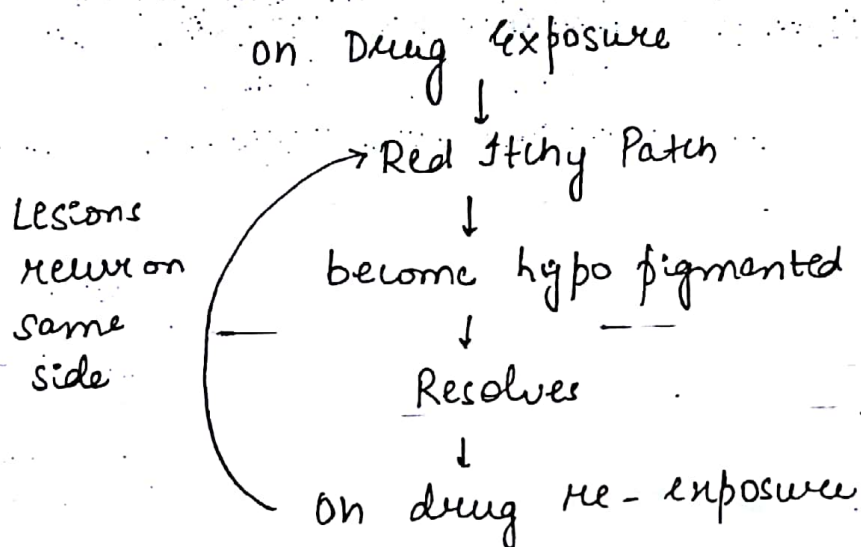 on Drug Exposure
↓
Red Itchy Patch
↓
become hypo pigmented
↓
Resolves
↓
on drug re-exposure
Lesions
recur on
same
side